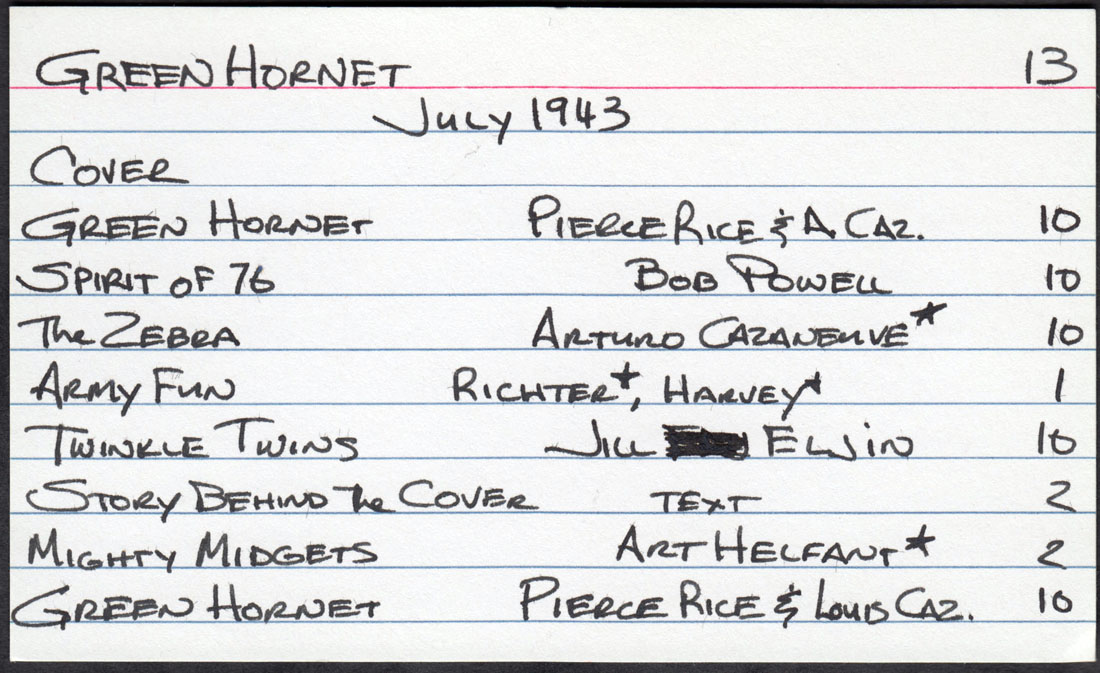 GREEN HORNET 13
JULY 1943
COVER
GREEN HORNET PIERCE RICE & A. CAZ. 10
SPIRIT OF 76 BOB POWELL 10
The ZEBRA ARTURO CAZANEUVE* 10
ARMY FUN RICHTER*, HARVEY* 1
TWINKLE TWINS JILL ELJIN 10
STORY BEHIND The COVER TEXT 2
MIGHTY MIDGETS ART HELFANT* 2
GREEN HORNET PIERCE RICE & LOUIS CAZ. 10